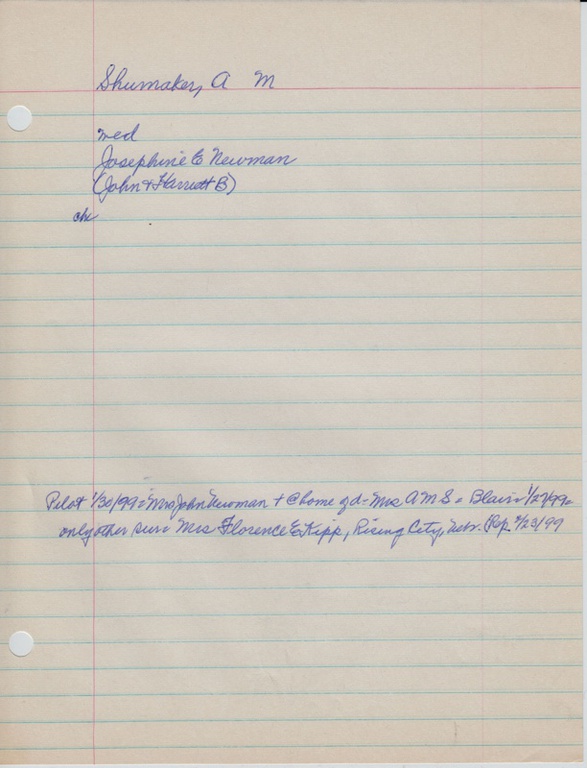 Shumaker, A M
wed
Josephine E Newman
(John + Harriett B)
ch
Pilot 1/30/99 = Mrs John Newman + @ home of d = Mrs A M S = Blair = 1/27/99 =
only other sur = Mrs Florence E Kipp, Rising City, Neb. Rep. 2/23/99